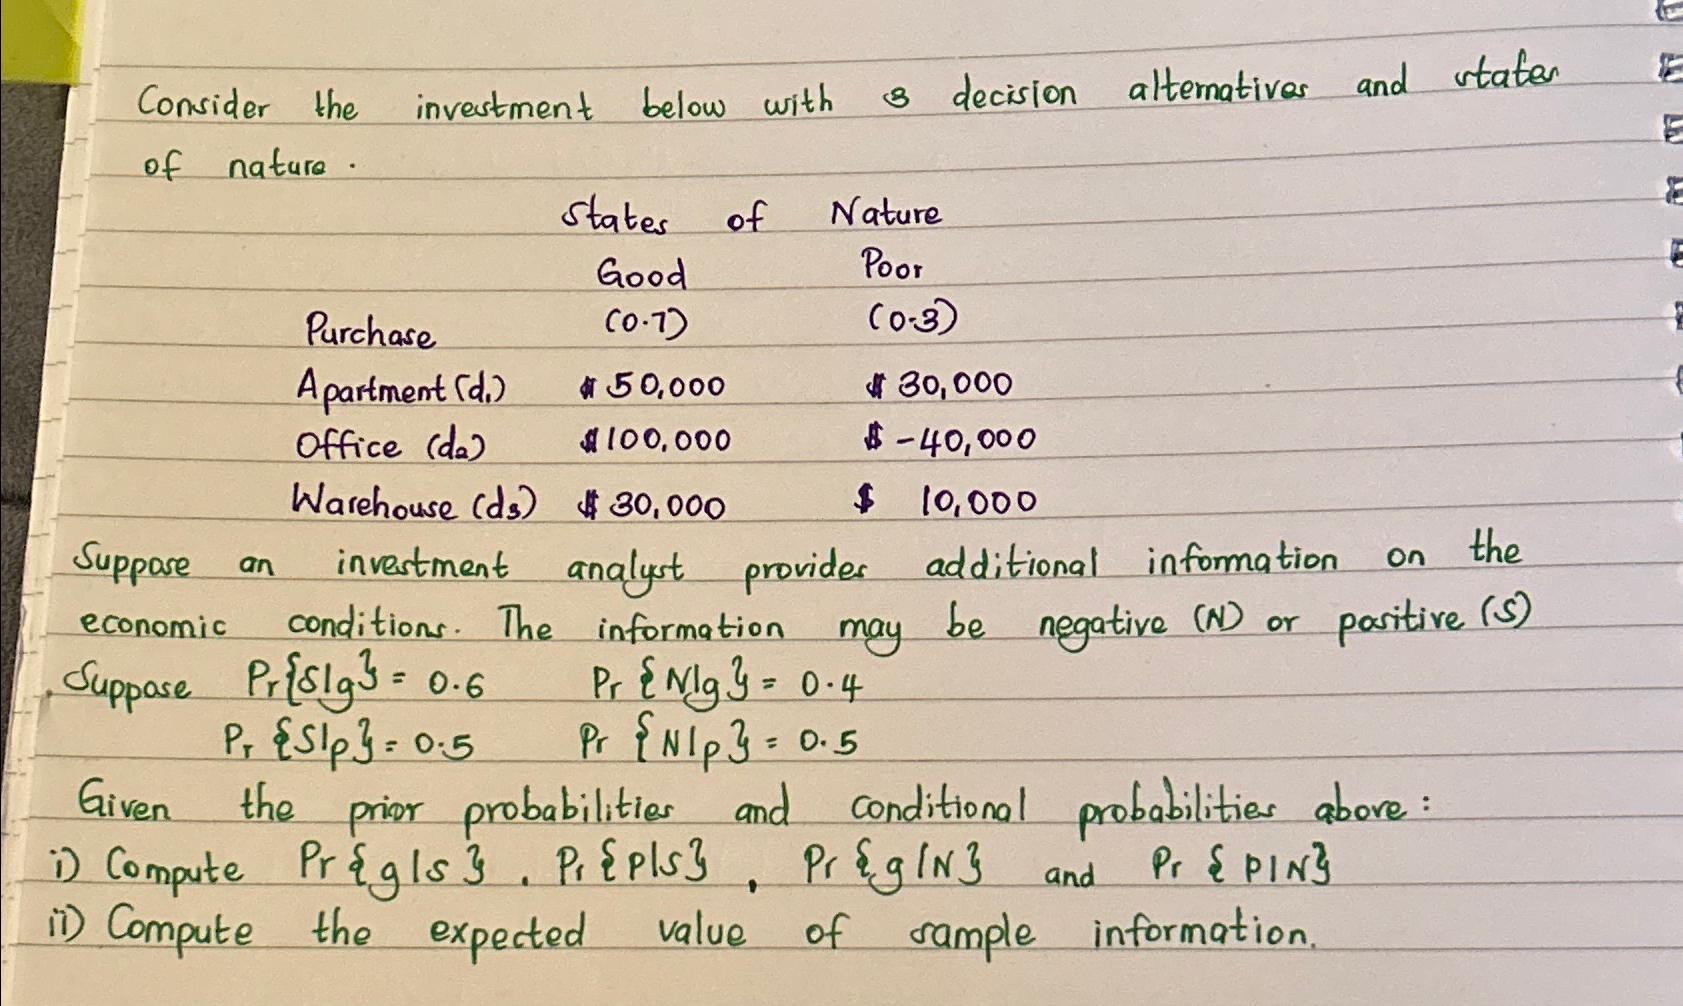 Consider the investment below with 3 decision alternatives and states
of nature.
States of Nature
Good Poor
Purchase (0.7) (0.3)
Apartment (d1) $ 50,000 $ 30,000
Office (d2) $100,000 $ -40,000
Warehouse (d3) $ 30,000 $ 10,000
Suppose an investment analyst provides additional information on the
economic conditions. The information may be negative (N) or positive (S)
Suppose Pr{S|g} = 0.6 Pr {N|g} = 0.4
Pr {S|p} = 0.5 Pr {N|p} = 0.5
Given the prior probabilities and conditional probabilities above:
i) Compute Pr{g|s}, Pr{p|s}, Pr{g|N} and Pr {p|N}
ii) Compute the expected value of sample information.